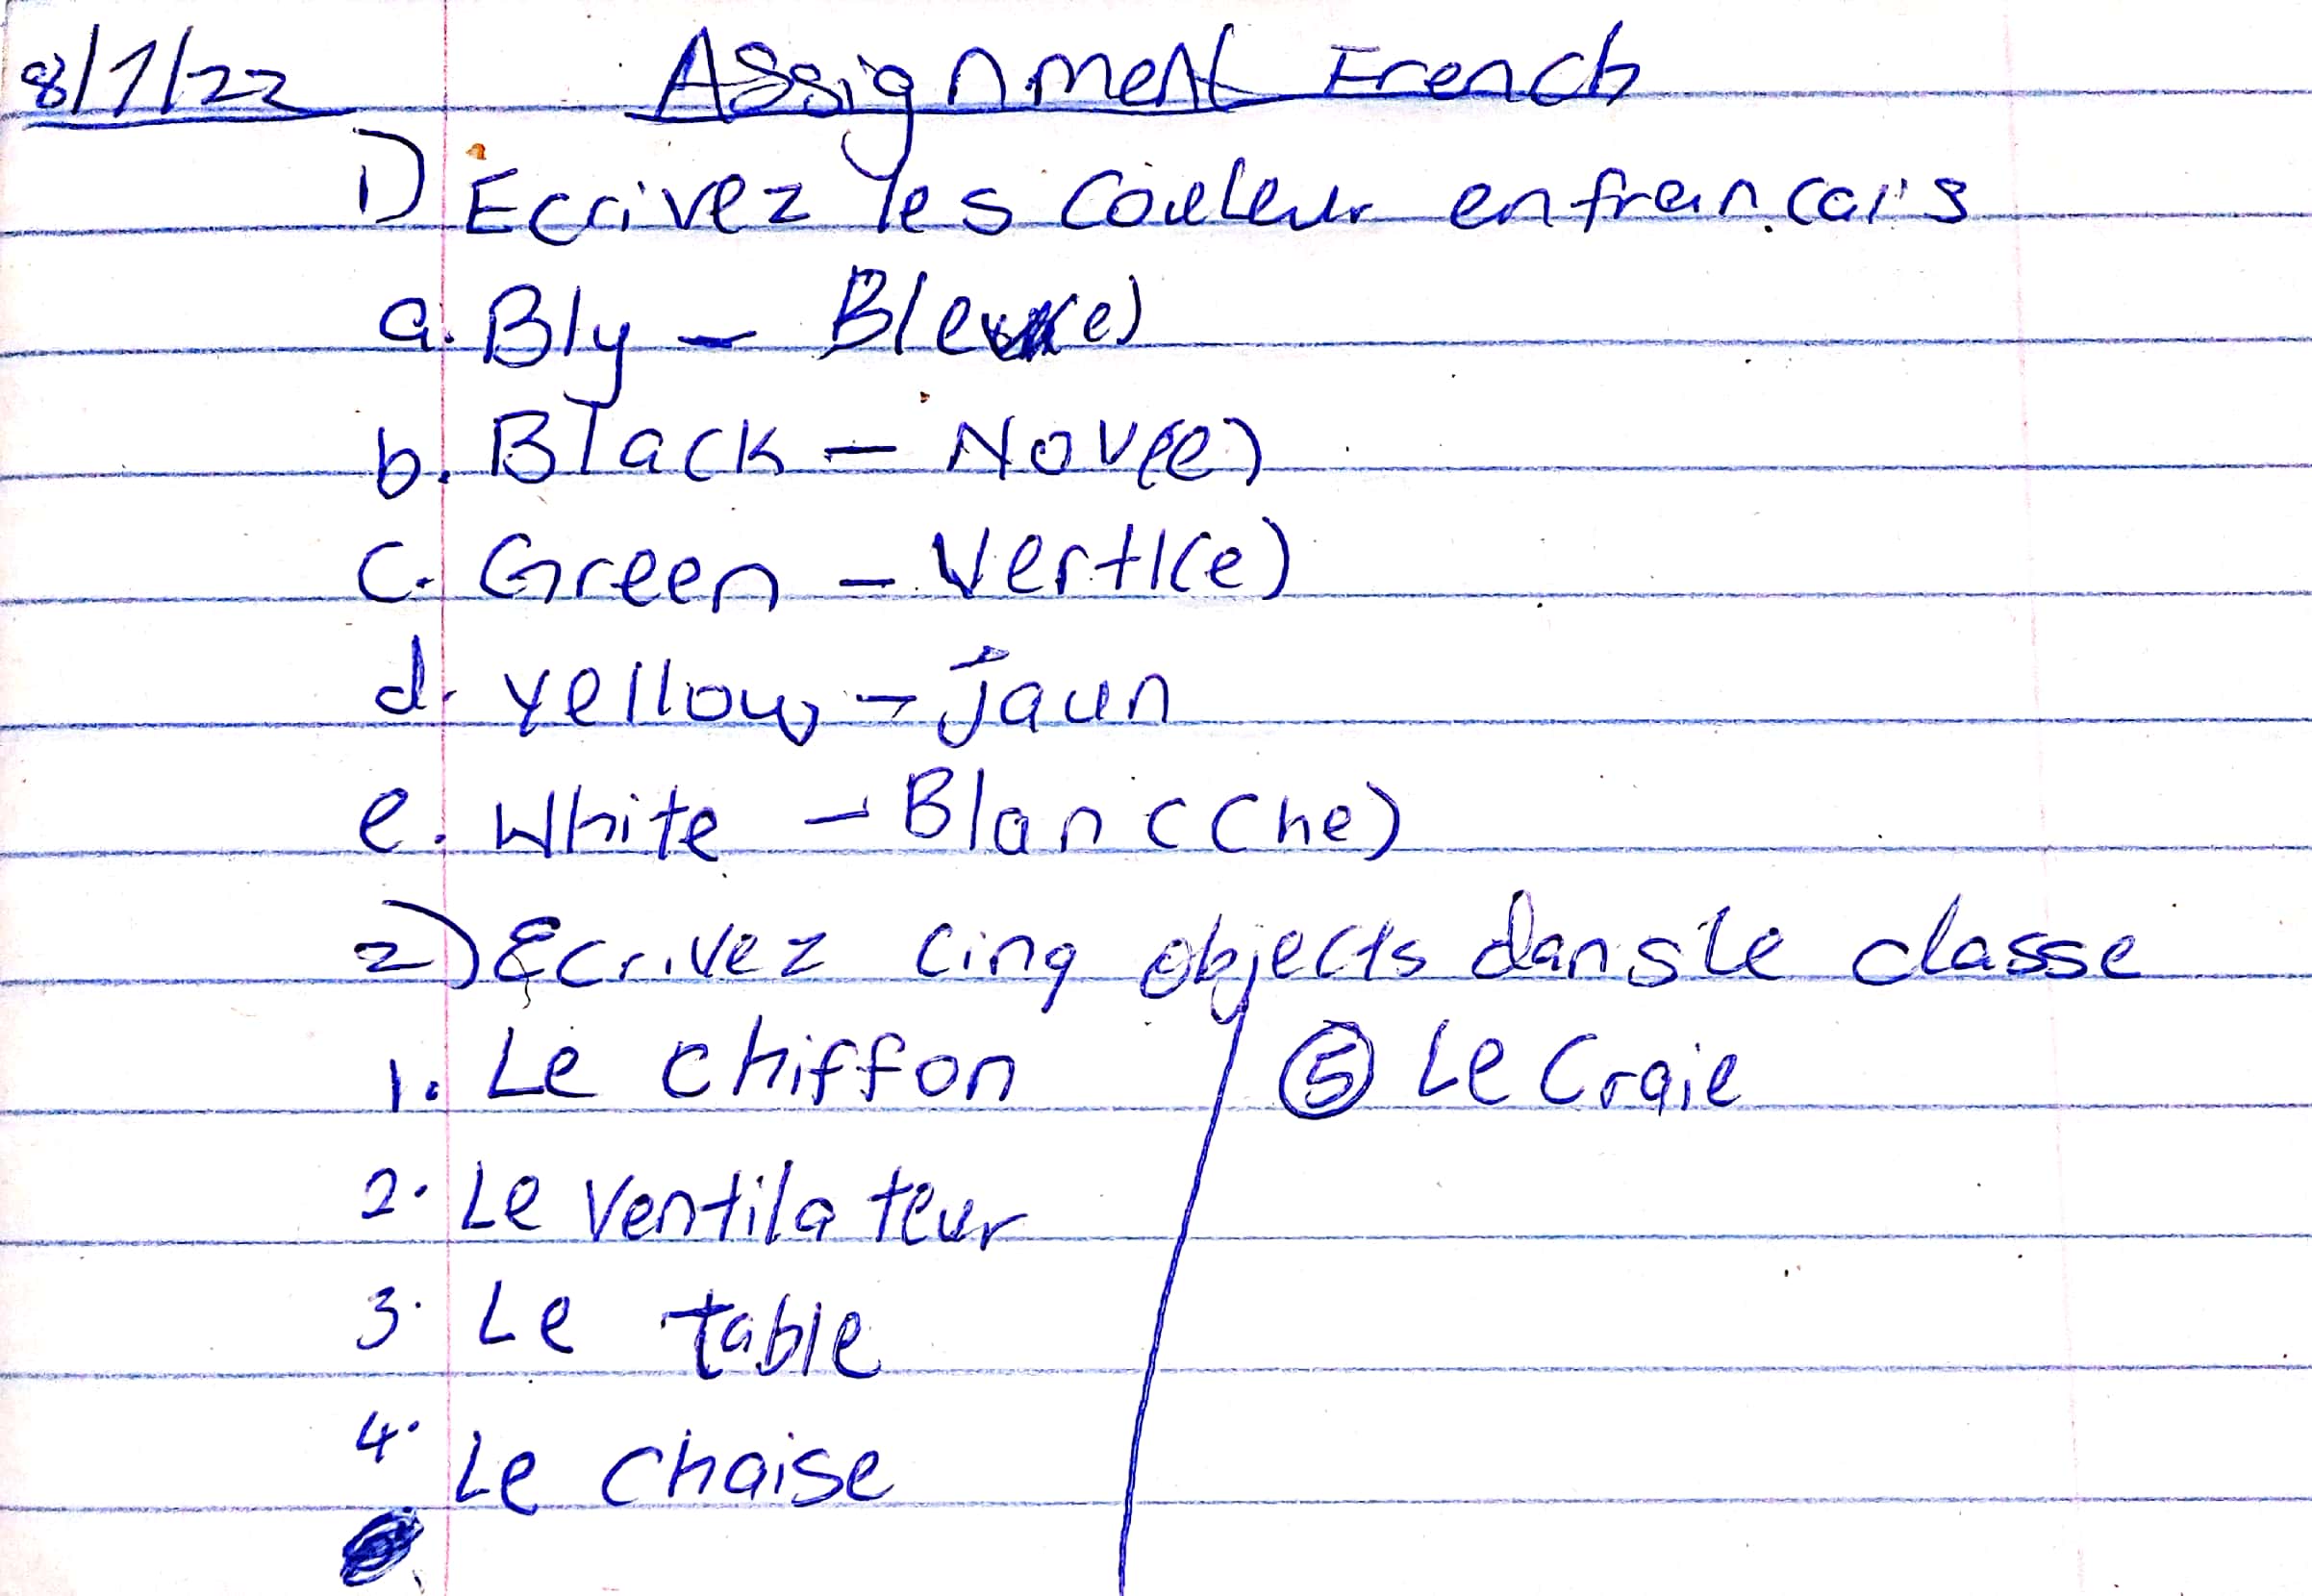 8/7/22 Assignment French
1) Ecrivez les couleur en francais
a. Bly - Bleu(e)
b. Black - Nov(e)
c. Green - Vert(e)
d. Yellow - Jaun
e. White - Blanc(he)
2) Ecrivez cinq objects dans le classe
1. Le chiffon
2. Le ventilateur
3. Le table
4. Le chaise
5 Le Craie